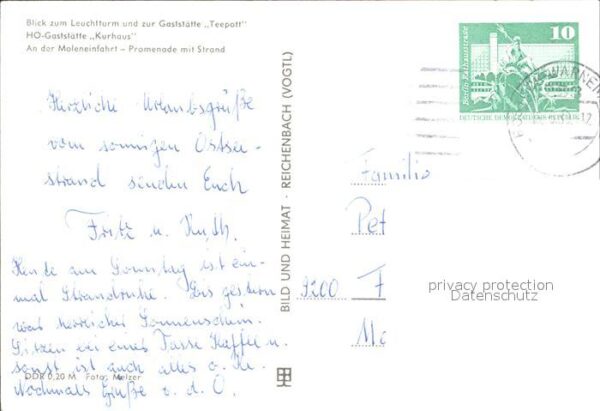 Blick zum Leuchtturm und zur Gaststätte „Teepott"
HO-Gaststätte „Kurhaus"
An der Moleneinfahrt – Promenade mit Strand
Herzliche Urlaubsgrüße
vom sonnigen Ostsee-
strand senden Euch
Fritz u. Ruth.
Heute am Sonntag ist ein-
mal Strandruhe. Bis gestern
war herrlicher Sonnenschein.
Sitzen bei einer Tasse Kaffee u.
sonst ist auch alles o. Ke.
Nochmals Grüße v. d. O.
DDR 0,20 M Foto: Melzer
BILD UND HEIMAT · REICHENBACH (VOGTL)
Berlin, Rathausstraße
10
DEUTSCHE DEMOKRATISCHE REPUBLIK
WARNEM
Familie
Pet
9200 F
privacy protection
Datenschutz